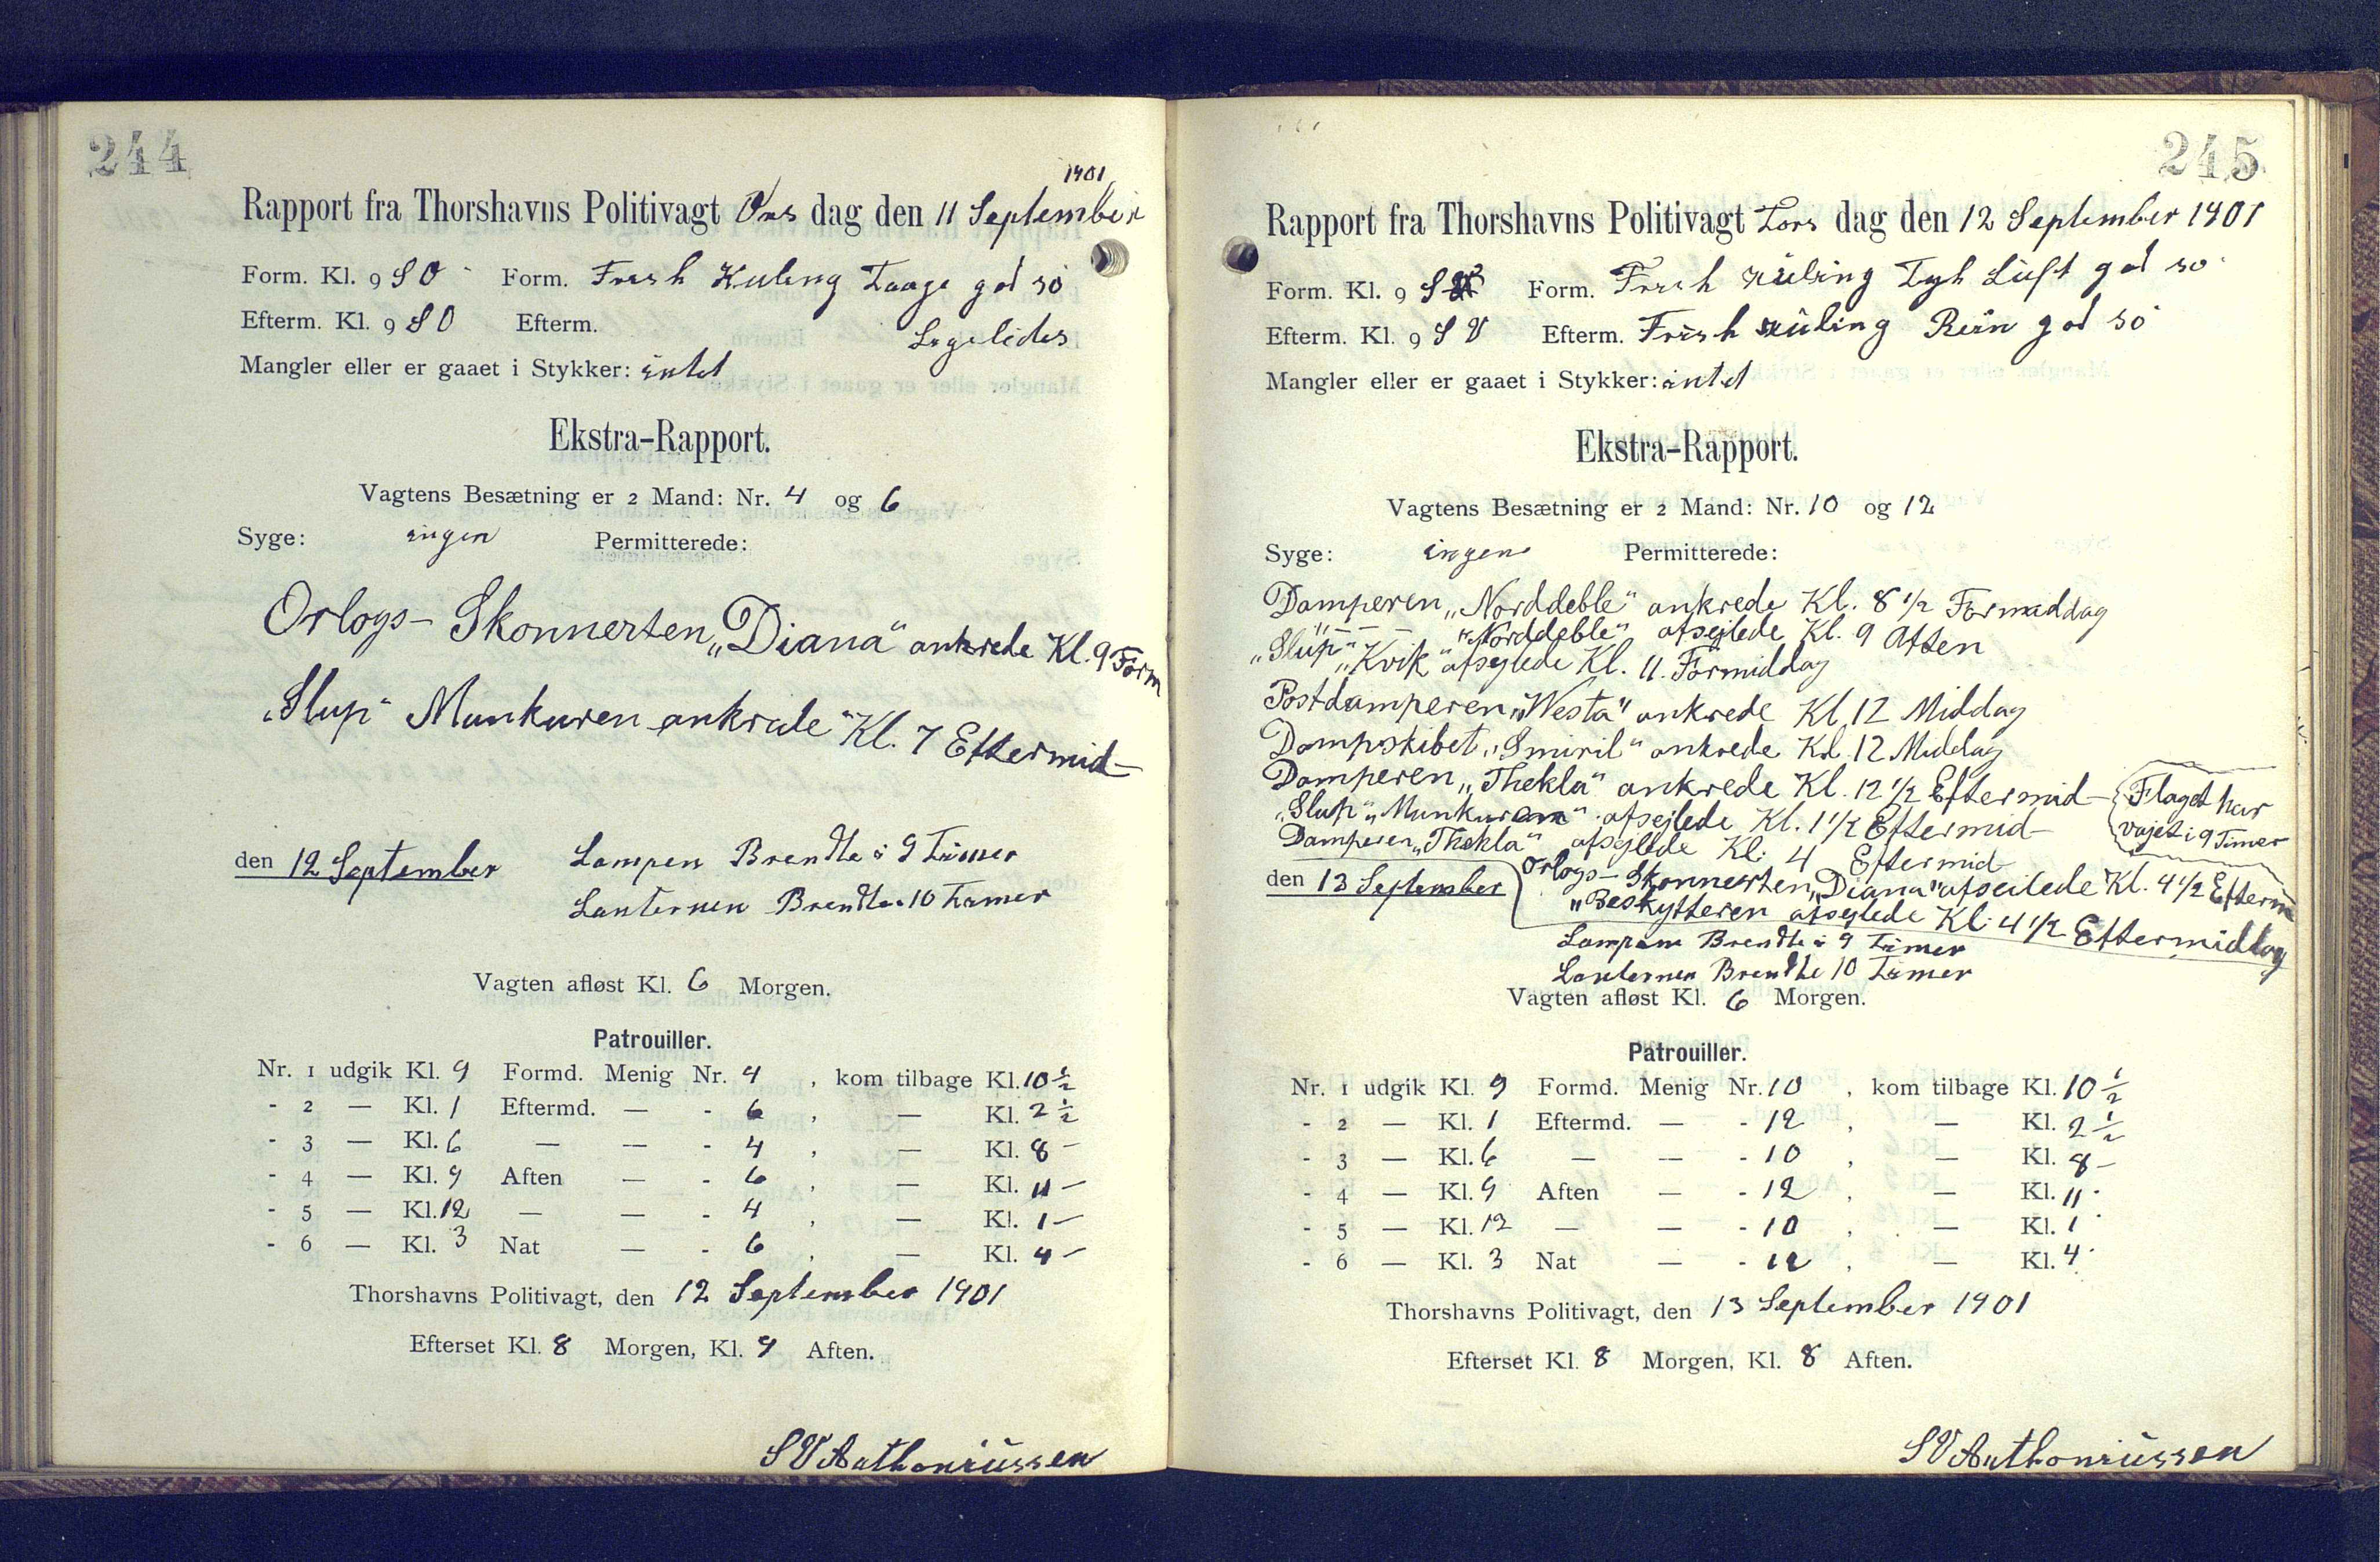 244
1901
Rapport fra Thorshavns Politivagt Ons dag den 11 September
Form. Kl. 9 SO Form. Frish Kuling Taage god sö
Efterm. Kl. 9 SO Efterm. Ligeledes
Mangler eller er gaaet i Stykker: intet
Ekstra-Rapport.
Vagtens Besætning er 2 Mand: Nr. 4 og 6
Syge: ingen Permitterede:
Orlogs- Skonnerten „Diana" ankrede Kl. 9 Form
„Slup" Munkuren ankrede" Kl. 7 Eftermid-
den 12 September Lampen Brendte i 9 Timer
Lanternen Brendte i 10 Timer
Vagten afløst Kl. 6 Morgen.
Patrouiller.
Nr. 1 udgik Kl. 9 Formd. Menig Nr. 4 , kom tilbage Kl. 10 1/2
- 2 — Kl. 1 Eftermd. — - 6 , — Kl. 2 1/2
- 3 — Kl. 6 — — - 4 , — Kl. 8 -
- 4 — Kl. 9 Aften — - 6 , — Kl. 11 -
- 5 — Kl. 12 — — - 4 , — Kl. 1 -
- 6 — Kl. 3 Nat — - 6 , — Kl. 4 -
Thorshavns Politivagt, den 12 September 1901
Efterset Kl. 8 Morgen, Kl. 9 Aften.
SV Anthoniussen
245
Rapport fra Thorshavns Politivagt Tors dag den 12 September 1901
Form. Kl. 9 S Form. Frish Kuling Tyk Luft god sö
Efterm. Kl. 9 S V Efterm. Frish Kuling Rein god sö
Mangler eller er gaaet i Stykker: intet
Ekstra-Rapport.
Vagtens Besætning er 2 Mand: Nr. 10 og 12
Syge: ingen Permitterede:
Damperen „Norddeble" ankrede Kl. 8 1/2 Formeddag
" — — "Norddeble" afsejlede Kl. 9 Aften
„Slup" „Kvik" afsejlede Kl. 11. Formiddag
Postdamperen „Westa" ankrede Kl. 12 Middag
Dampskibet „Smiril" ankrede Kl. 12 Middag
Damperen „Thekla" ankrede Kl. 12 1/2 Eftermid-
Flaget har
vajet i 9 Timer
„Slup" „Munkuren" afsejlede Kl. 1 1/2 Eftermid-
Damperen „Thekla" afsejlede Kl. 4 Eftermid-
den 13 September Orlogs- Skonnerten „Diana" afseilede Kl. 4 1/2 Efterm
"Beskytteren afsejlede Kl. 4 1/2 Eftermiddag
Lampen Brendte i 9 Timer
Lanternen Brendte 10 Timer
Vagten afløst Kl. 6 Morgen.
Patrouiller.
Nr. 1 udgik Kl. 9 Formd. Menig Nr. 10 , kom tilbage Kl. 10 1/2
- 2 — Kl. 1 Eftermd. — - 12 , — Kl. 2 1/2
- 3 — Kl. 6 — — - 10 , — Kl. 8 -
- 4 — Kl. 9 Aften — - 12 , — Kl. 11 -
- 5 — Kl. 12 — — - 10 , — Kl. 1 -
- 6 — Kl. 3 Nat — - 12 , — Kl. 4 -
Thorshavns Politivagt, den 13 September 1901
Efterset Kl. 8 Morgen, Kl. 8 Aften.
SV Anthoniussen